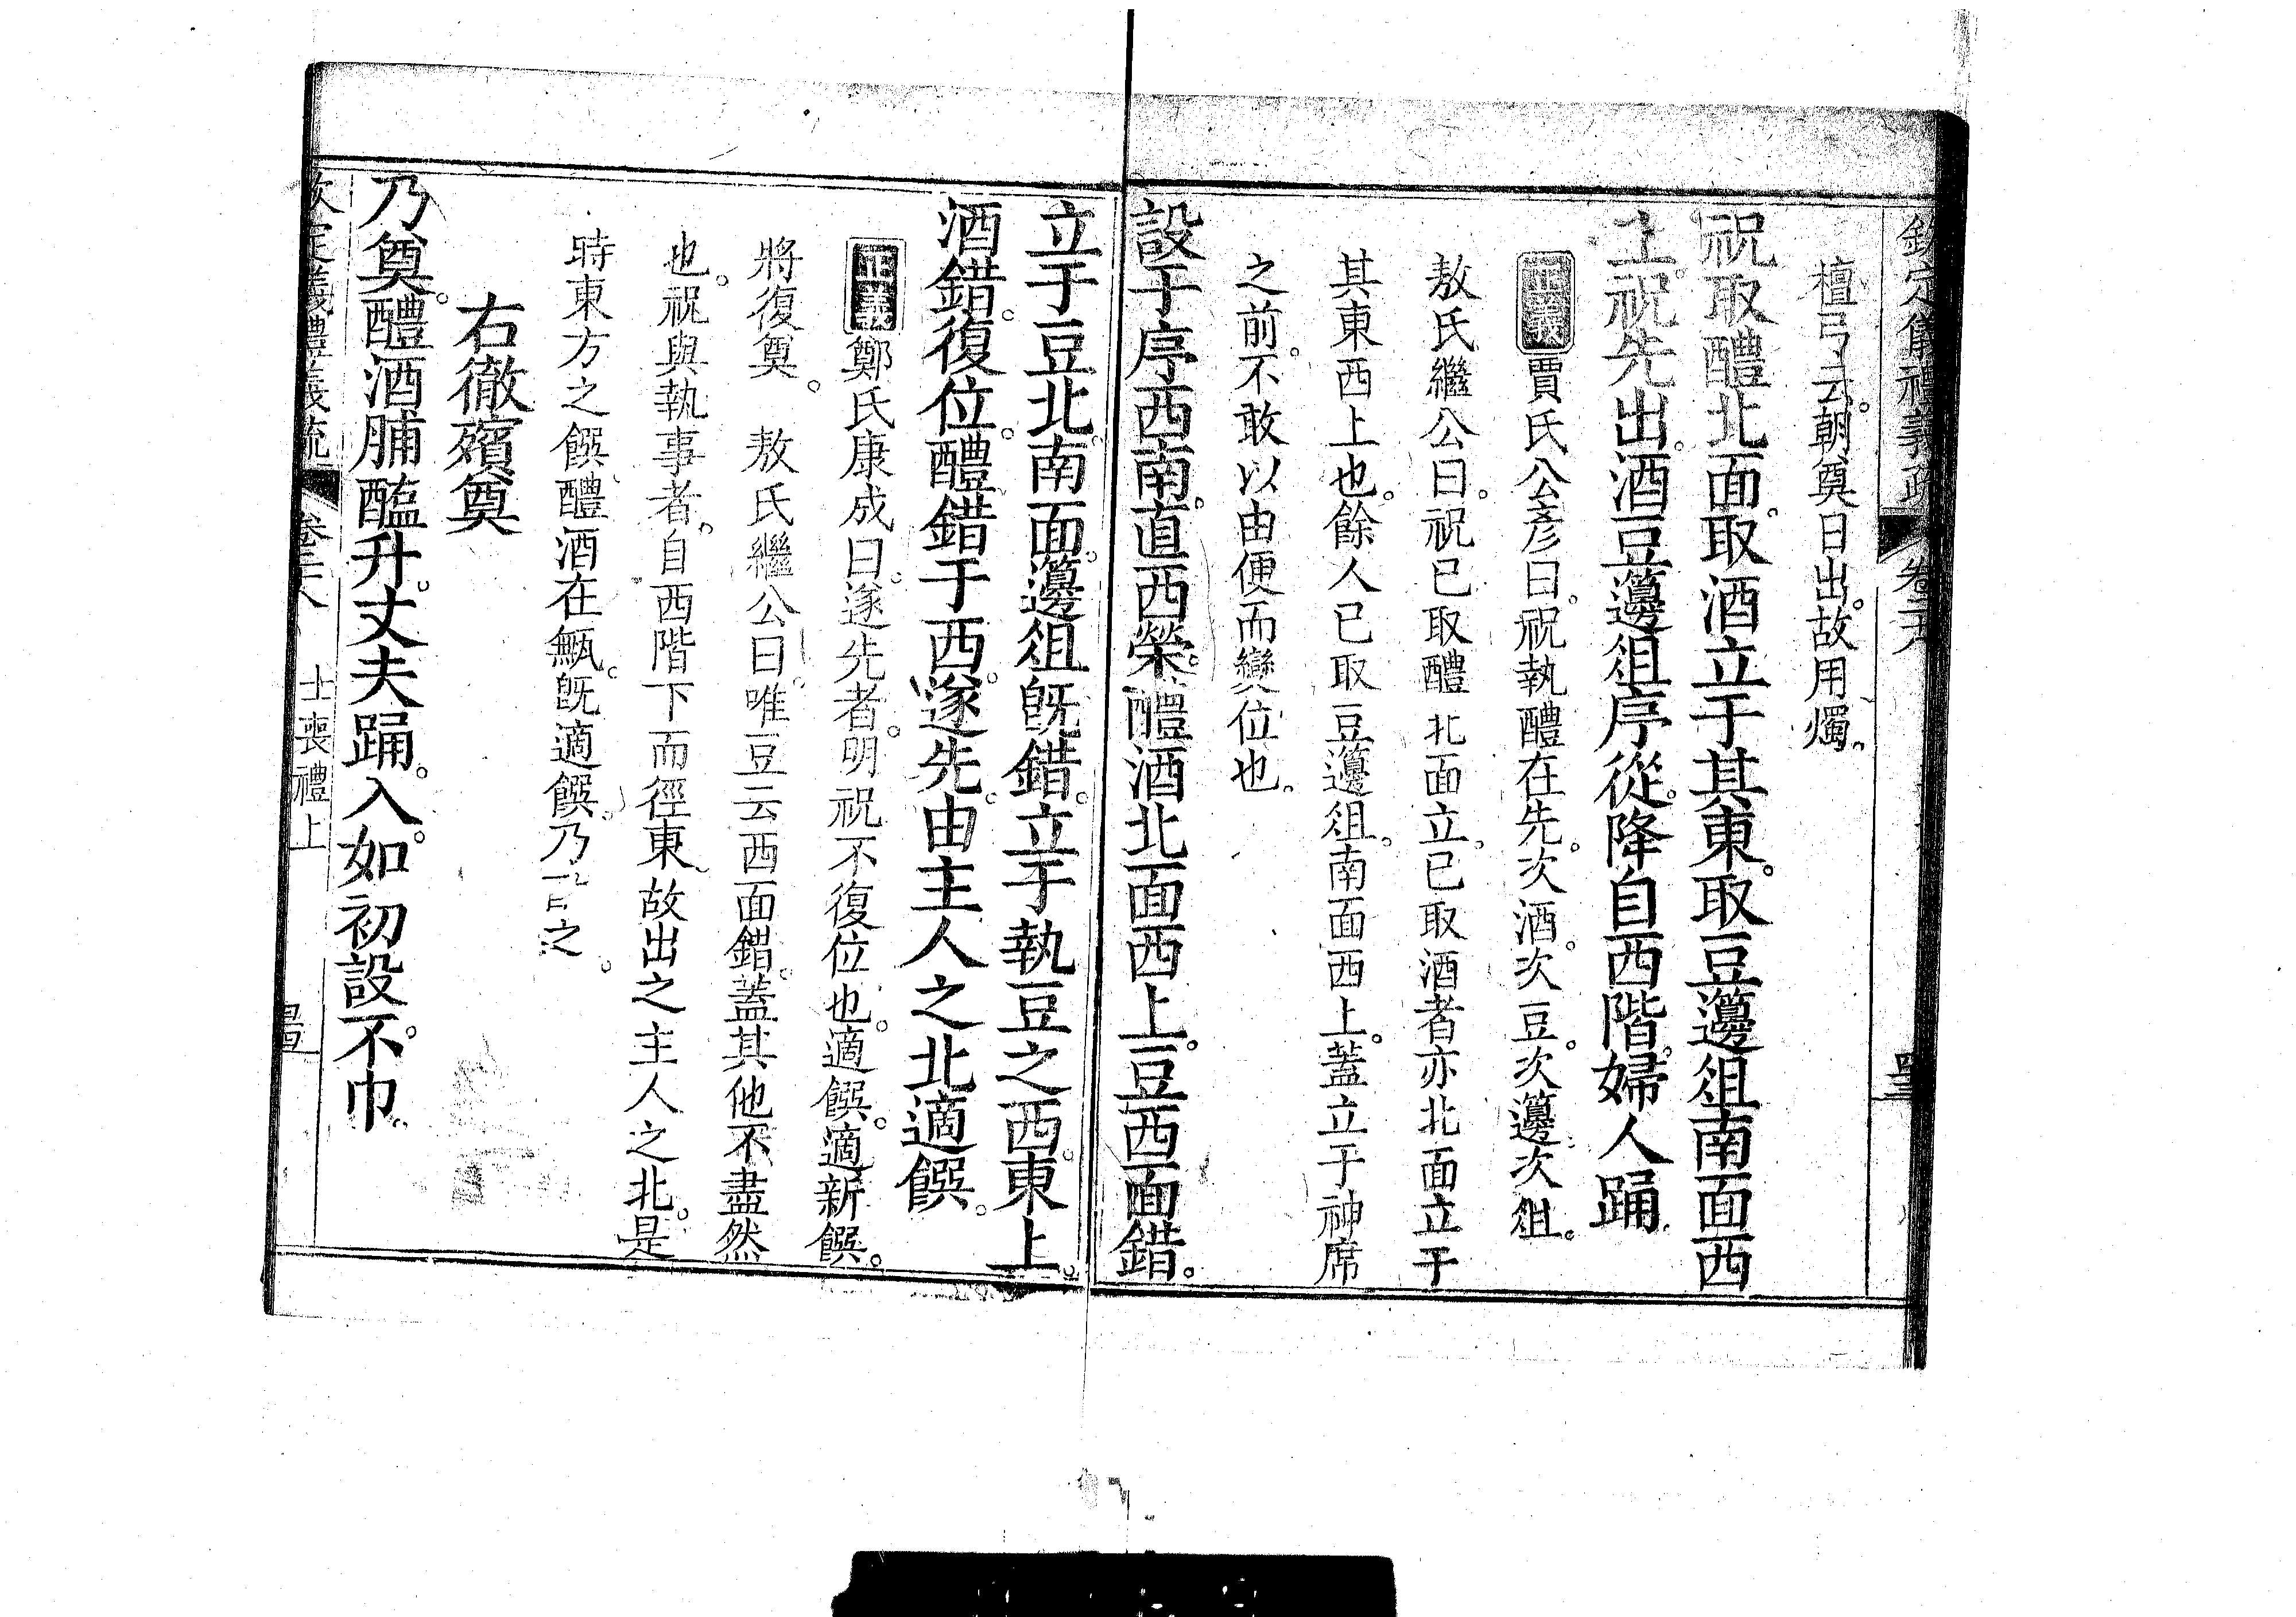 欽定儀禮義疏 卷二十八
檀弓云。朝奠日出。故用燭。
祝取醴北面。取酒立于其東。取豆籩俎南面西
上。祝先出。酒豆籩俎序從。降自西階。婦人踊。
正義 賈氏公彥曰。祝執醴在先。次酒。次豆。次籩。次俎。
敖氏繼公曰。祝已取醴北面立。已取酒者亦北面立于
其東西上也。餘人已取豆籩俎。南面西上。蓋立于神席
之前。不敢以由便而變位也。
設于序西南。直西榮。醴酒北面西上。豆西面錯。
立于豆北南面。籩俎旣錯。立于執豆之西。東上。
酒錯。復位。醴錯于西。遂先。由主人之北適饌。
正義 鄭氏康成曰。遂先者。明祝不復位也。適饌。適新饌。
將復奠。 敖氏繼公曰。唯豆云西面錯。蓋其他不盡然
也。祝與執事者。自西階下而徑東。故出之主人之北。是
時東方之饌。醴酒在甒。旣適饌。乃之。
右徹殯奠
乃奠。醴酒脯醢升。丈夫踊。入。如初設。不巾。
欽定儀禮義疏 卷二十八 士喪禮上